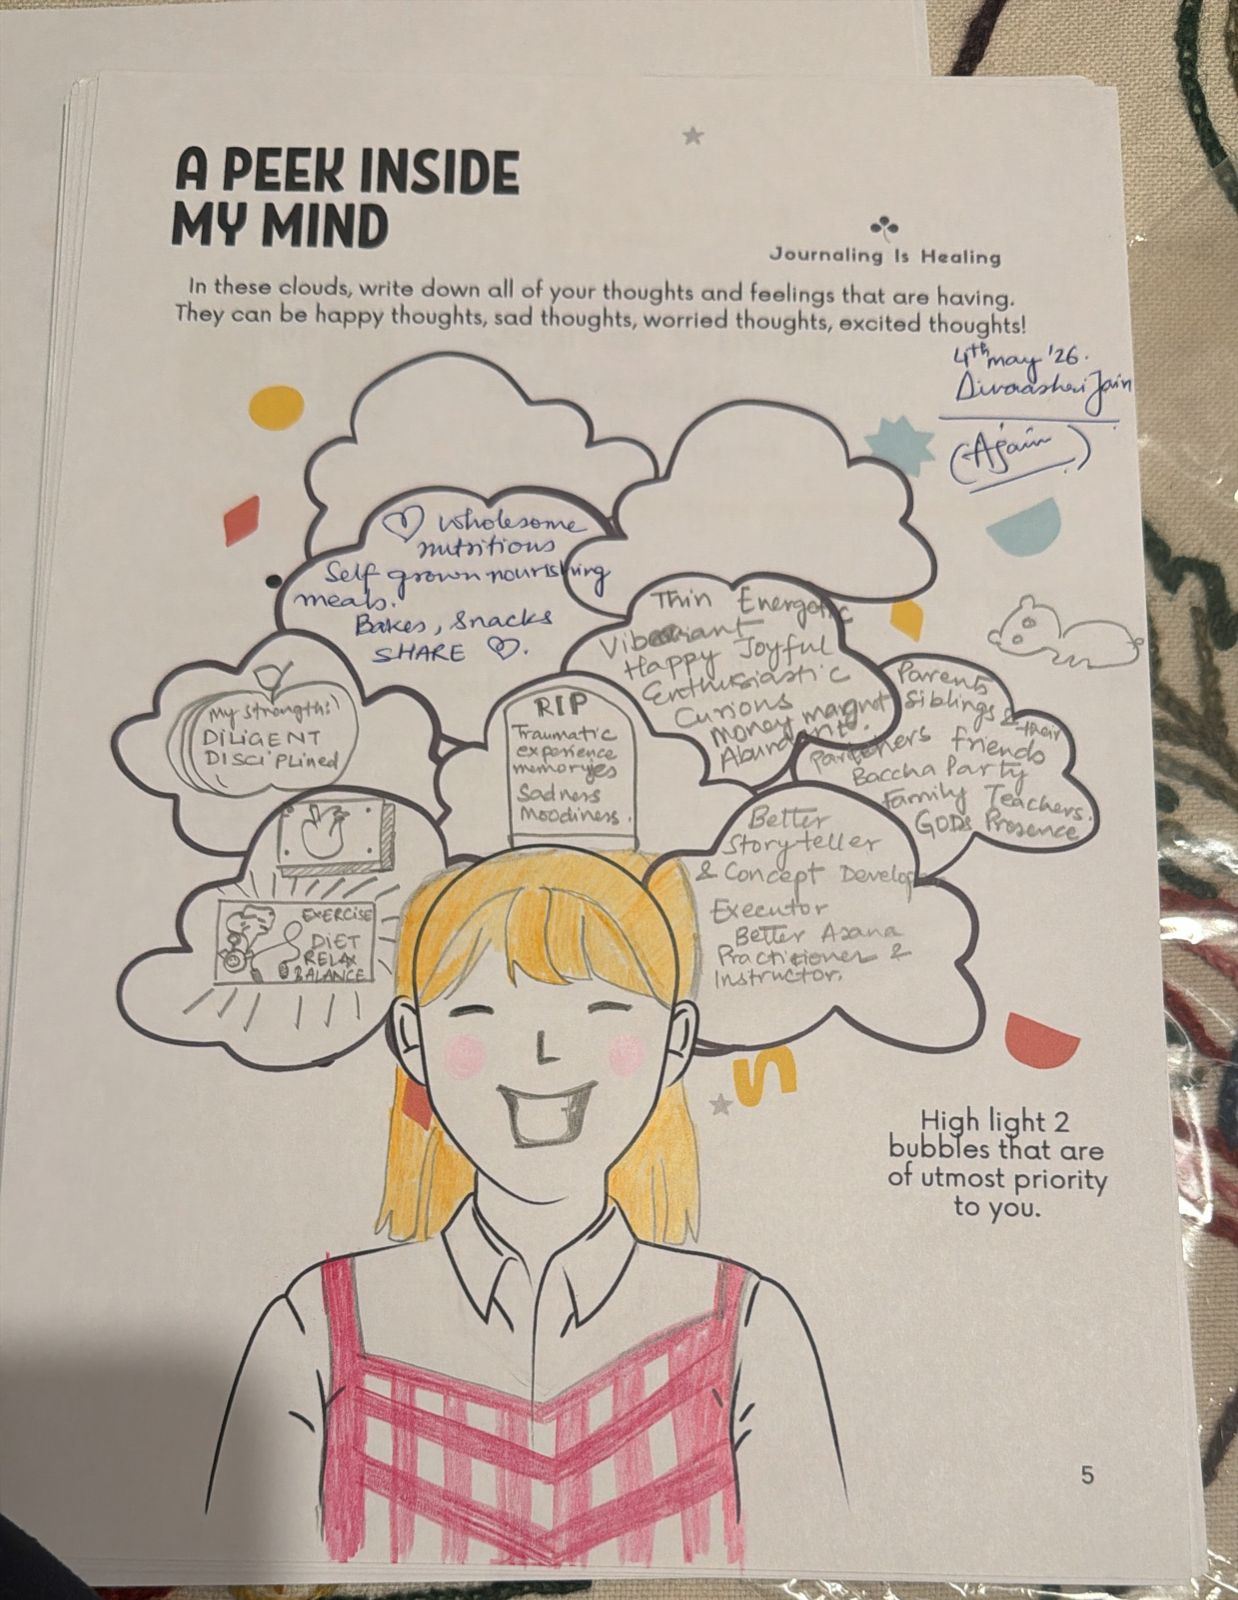 A PEEK INSIDE
MY MIND
Journaling Is Healing
In these clouds, write down all of your thoughts and feelings that are having.
They can be happy thoughts, sad thoughts, worried thoughts, excited thoughts!
4th may '26.
Divaashri Jain
(Again)
wholesome
nutritious
Self grown nourishing
meals.
Bakes, Snacks
SHARE
Thin Energetic
Vibrant
Happy Joyful
Enthusiastic
Curious
Money magnet
Abundant.
My strengths!
DILIGENT
DISCIPLINED
RIP
Traumatic
experience
memoryies
Sadness
Moodiness.
Parents
Siblings & their
Partners friends
Baccha Party
Family Teachers.
GODs Presence
EXERCISE
DIET
RELAX
BALANCE
Better
Storyteller
& Concept Develop
Executor
Better Asana
Practitioner &
Instructor.
High light 2
bubbles that are
of utmost priority
to you.
5